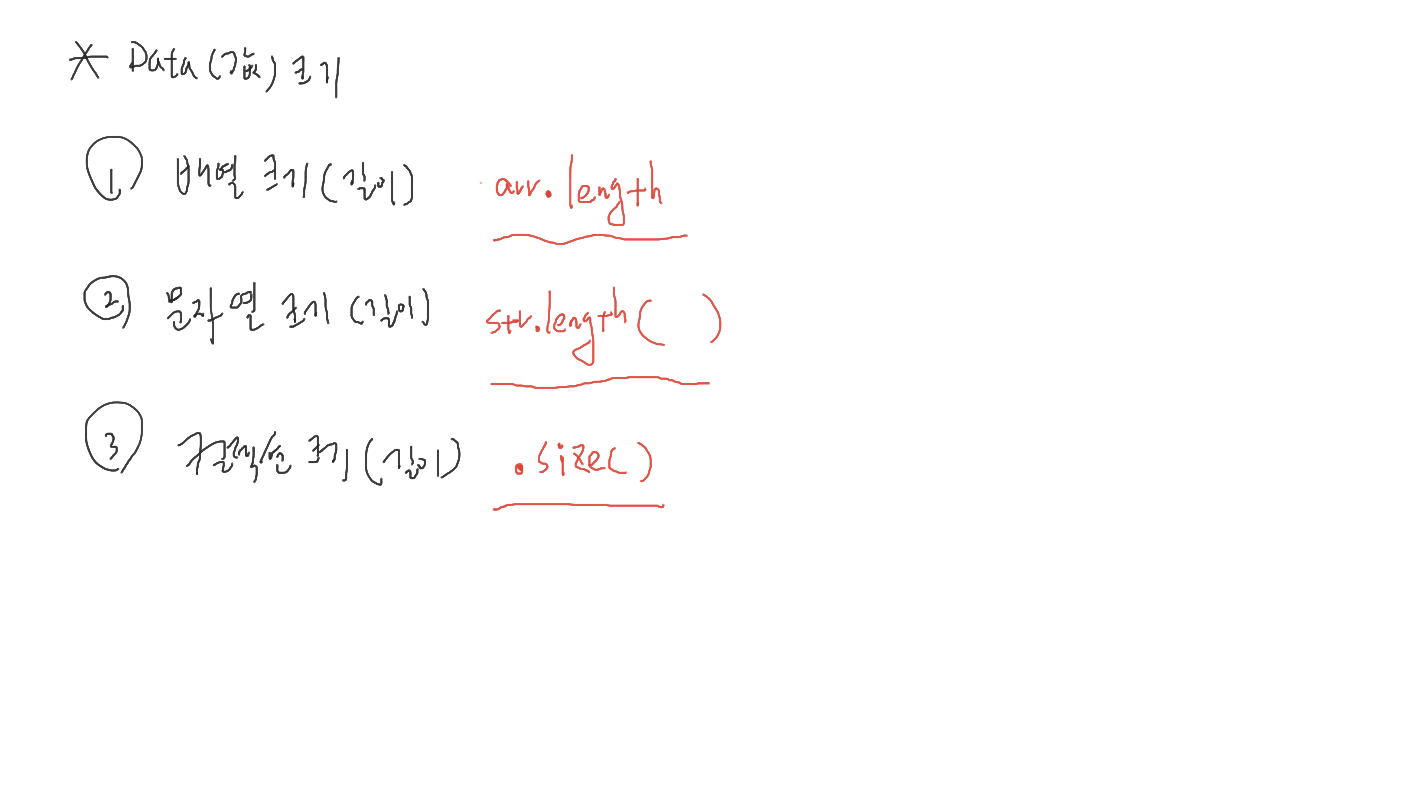 * Data(값) 크기
① 배열 크기(길이) arr.length
② 문자열 크기(길이) str.length( )
③ 컬렉션 크기(길이) .size()